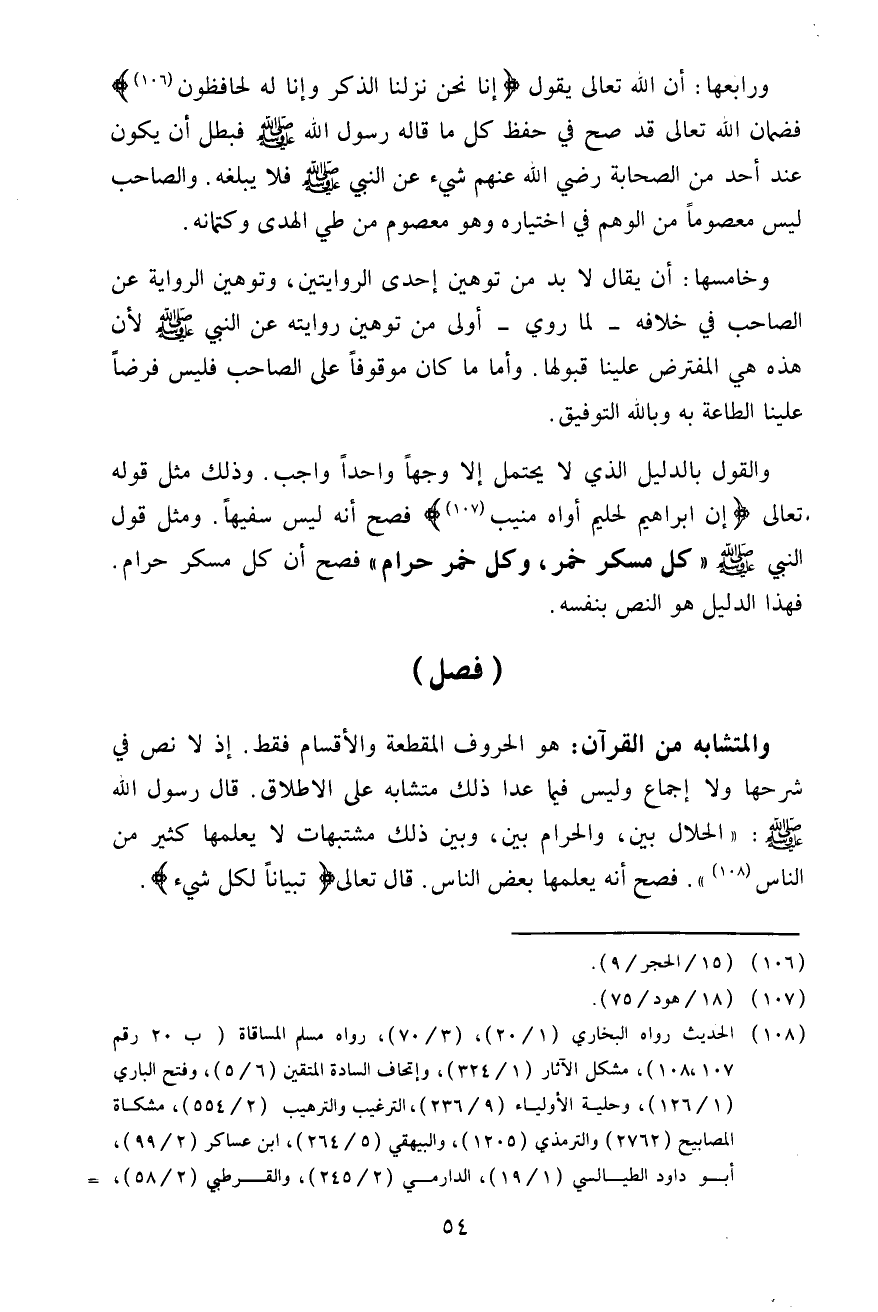 ورابعها: أن الله تعالى يقول ﴿إنا نحن نزلنا الذكر وإنا له لحافظون(١٠٦)﴾
فضمان الله تعالى قد صح في حفظ كل ما قاله رسول الله ﷺ فبطل أن يكون
عند أحد من الصحابة رضي الله عنهم شيء عن النبي ﷺ فلا يبلغه. والصاحب
ليس معصوماً من الوهم في اختياره وهو معصوم من طي الهدى وكتمانه.
وخامسها: أن يقال لا بد من توهين إحدى الروايتين، وتوهين الرواية عن
الصاحب في خلافه - لما روي - أولى من توهين روايته عن النبي ﷺ لأن
هذه هي المفترض علينا قبولها. وأما ما كان موقوفاً على الصاحب فليس فرضاً
علينا الطاعة به وبالله التوفيق.
والقول بالدليل الذي لا يحتمل إلا وجهاً واحداً واجب. وذلك مثل قوله
تعالى ﴿إن ابراهيم لحليم أواه منيب(١٠٧)﴾ فصح أنه ليس سفيهاً. ومثل قول
النبي ﷺ «كل مسكر خمر، وكل خمر حرام» فصح أن كل مسكر حرام.
فهذا الدليل هو النص بنفسه.
(فصل)
والمتشابه من القرآن: هو الحروف المقطعة والأقسام فقط. إذ لا نص في
شرحها ولا إجماع وليس فيما عدا ذلك متشابه على الاطلاق. قال رسول الله
ﷺ: «الحلال بين، والحرام بين، وبين ذلك مشتبهات لا يعلمها كثير من
الناس(١٠٨)». فصح أنه يعلمها بعض الناس. قال تعالى﴿ تبياناً لكل شيء﴾.
(١٠٦) (١٥/الحجر/٩).
(١٠٧) (١٨/هود/٧٥).
(١٠٨) الحديث رواه البخاري (٢٠/١)، (٧٠/٣)، رواه مسلم المساقاة ( ب ٢٠ رقم
١٠٧،١٠٨)، مشكل الآثار (٣٢٤/١)، وإتحاف السادة المتقين (٥/٦)، وفتح الباري
(١٢٦/١)، وحلية الأولياء (٢٣٦/٩)،الترغيب والترهيب (٥٥٤/٢)، مشكاة
المصابيح (٢٧٦٢) والترمذي (١٢٠٥)، والبيهقي (٢٦٤/٥)، ابن عساكر (٩٩/٢)،
أبو داود الطيالسي (١٩/١)، الدارمي (٢٤٥/٢)، والقرطبي (٥٨/٢)، =
٥٤